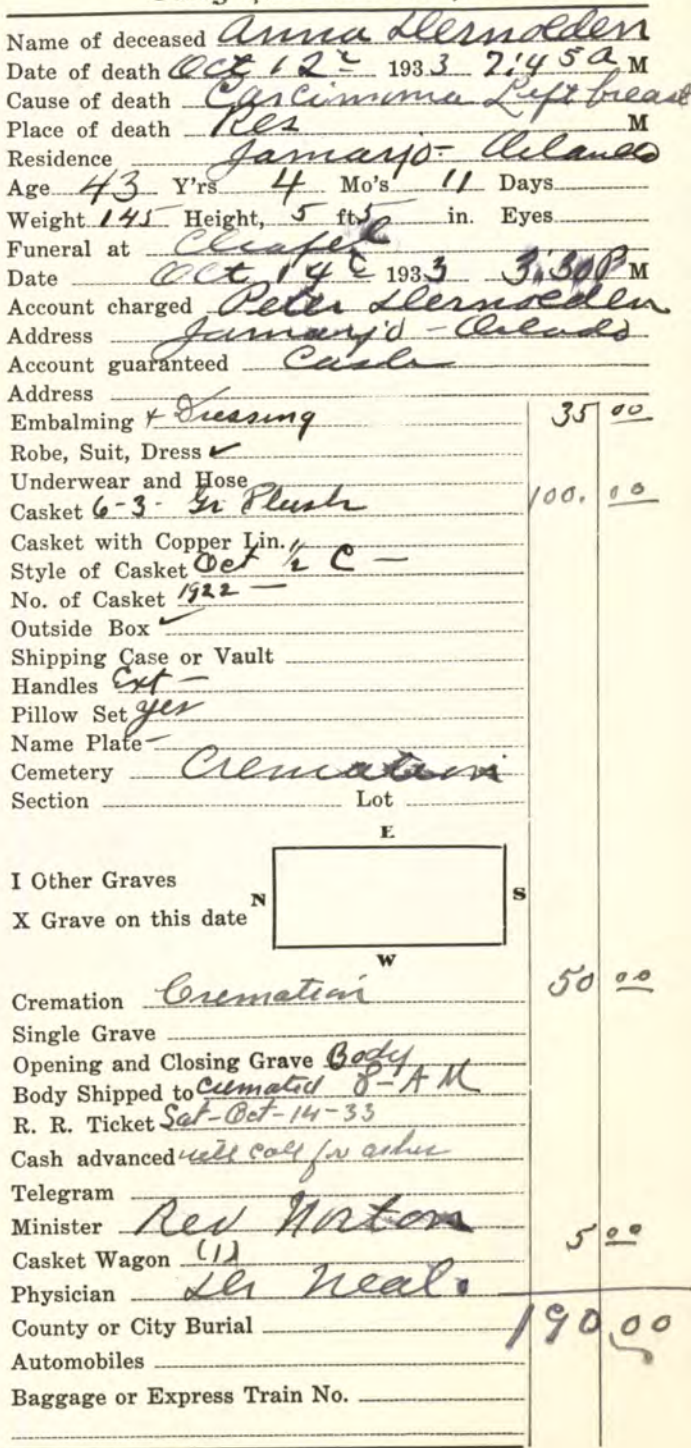 Name of deceased Anna Dernolden
Date of death Oct 12" 1933 7:45 a M
Cause of death Carcinoma Left breast
Place of death Res M
Residence Jamarjo - Orlando
Age 43 Y'rs 4 Mo's 11 Days
Weight 145 Height, 5 ft 5 in. Eyes
Funeral at Chapel
Date Oct 14" 1933 3:30 P M
Account charged Peter Dernolden
Address Jamarjo - Orlando
Account guaranteed Cash
Address
Embalming + Dressing 35 00
Robe, Suit, Dress ✓
Underwear and Hose
Casket 6-3- Gr Plush 100. 00
Casket with Copper Lin.
Style of Casket Oct 1/2 C -
No. of Casket 1922 -
Outside Box ✓
Shipping Case or Vault
Handles Ext -
Pillow Set yes
Name Plate -
Cemetery Cremation
Section Lot
E
I Other Graves
N S
X Grave on this date
W
Cremation Cremation 50 00
Single Grave
Opening and Closing Grave Body
Body Shipped to cremated 8 - A M
R. R. Ticket Sat-Oct-14-33
Cash advanced will call for ashes
Telegram
Minister Rev Norton 5 00
Casket Wagon (1)
Physician Dr Neal.
County or City Burial 190,00
Automobiles
Baggage or Express Train No.